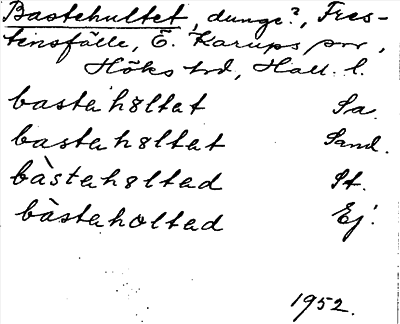 Bastehultet, dunge?, Fres-
tensfälle, Ö. Karups sn,
Höks hd, Hall. l.
bastahøltet Sa.
bastahøltet Sand.
bàstahøltad St.
bàstaholtad Ej.
1952.